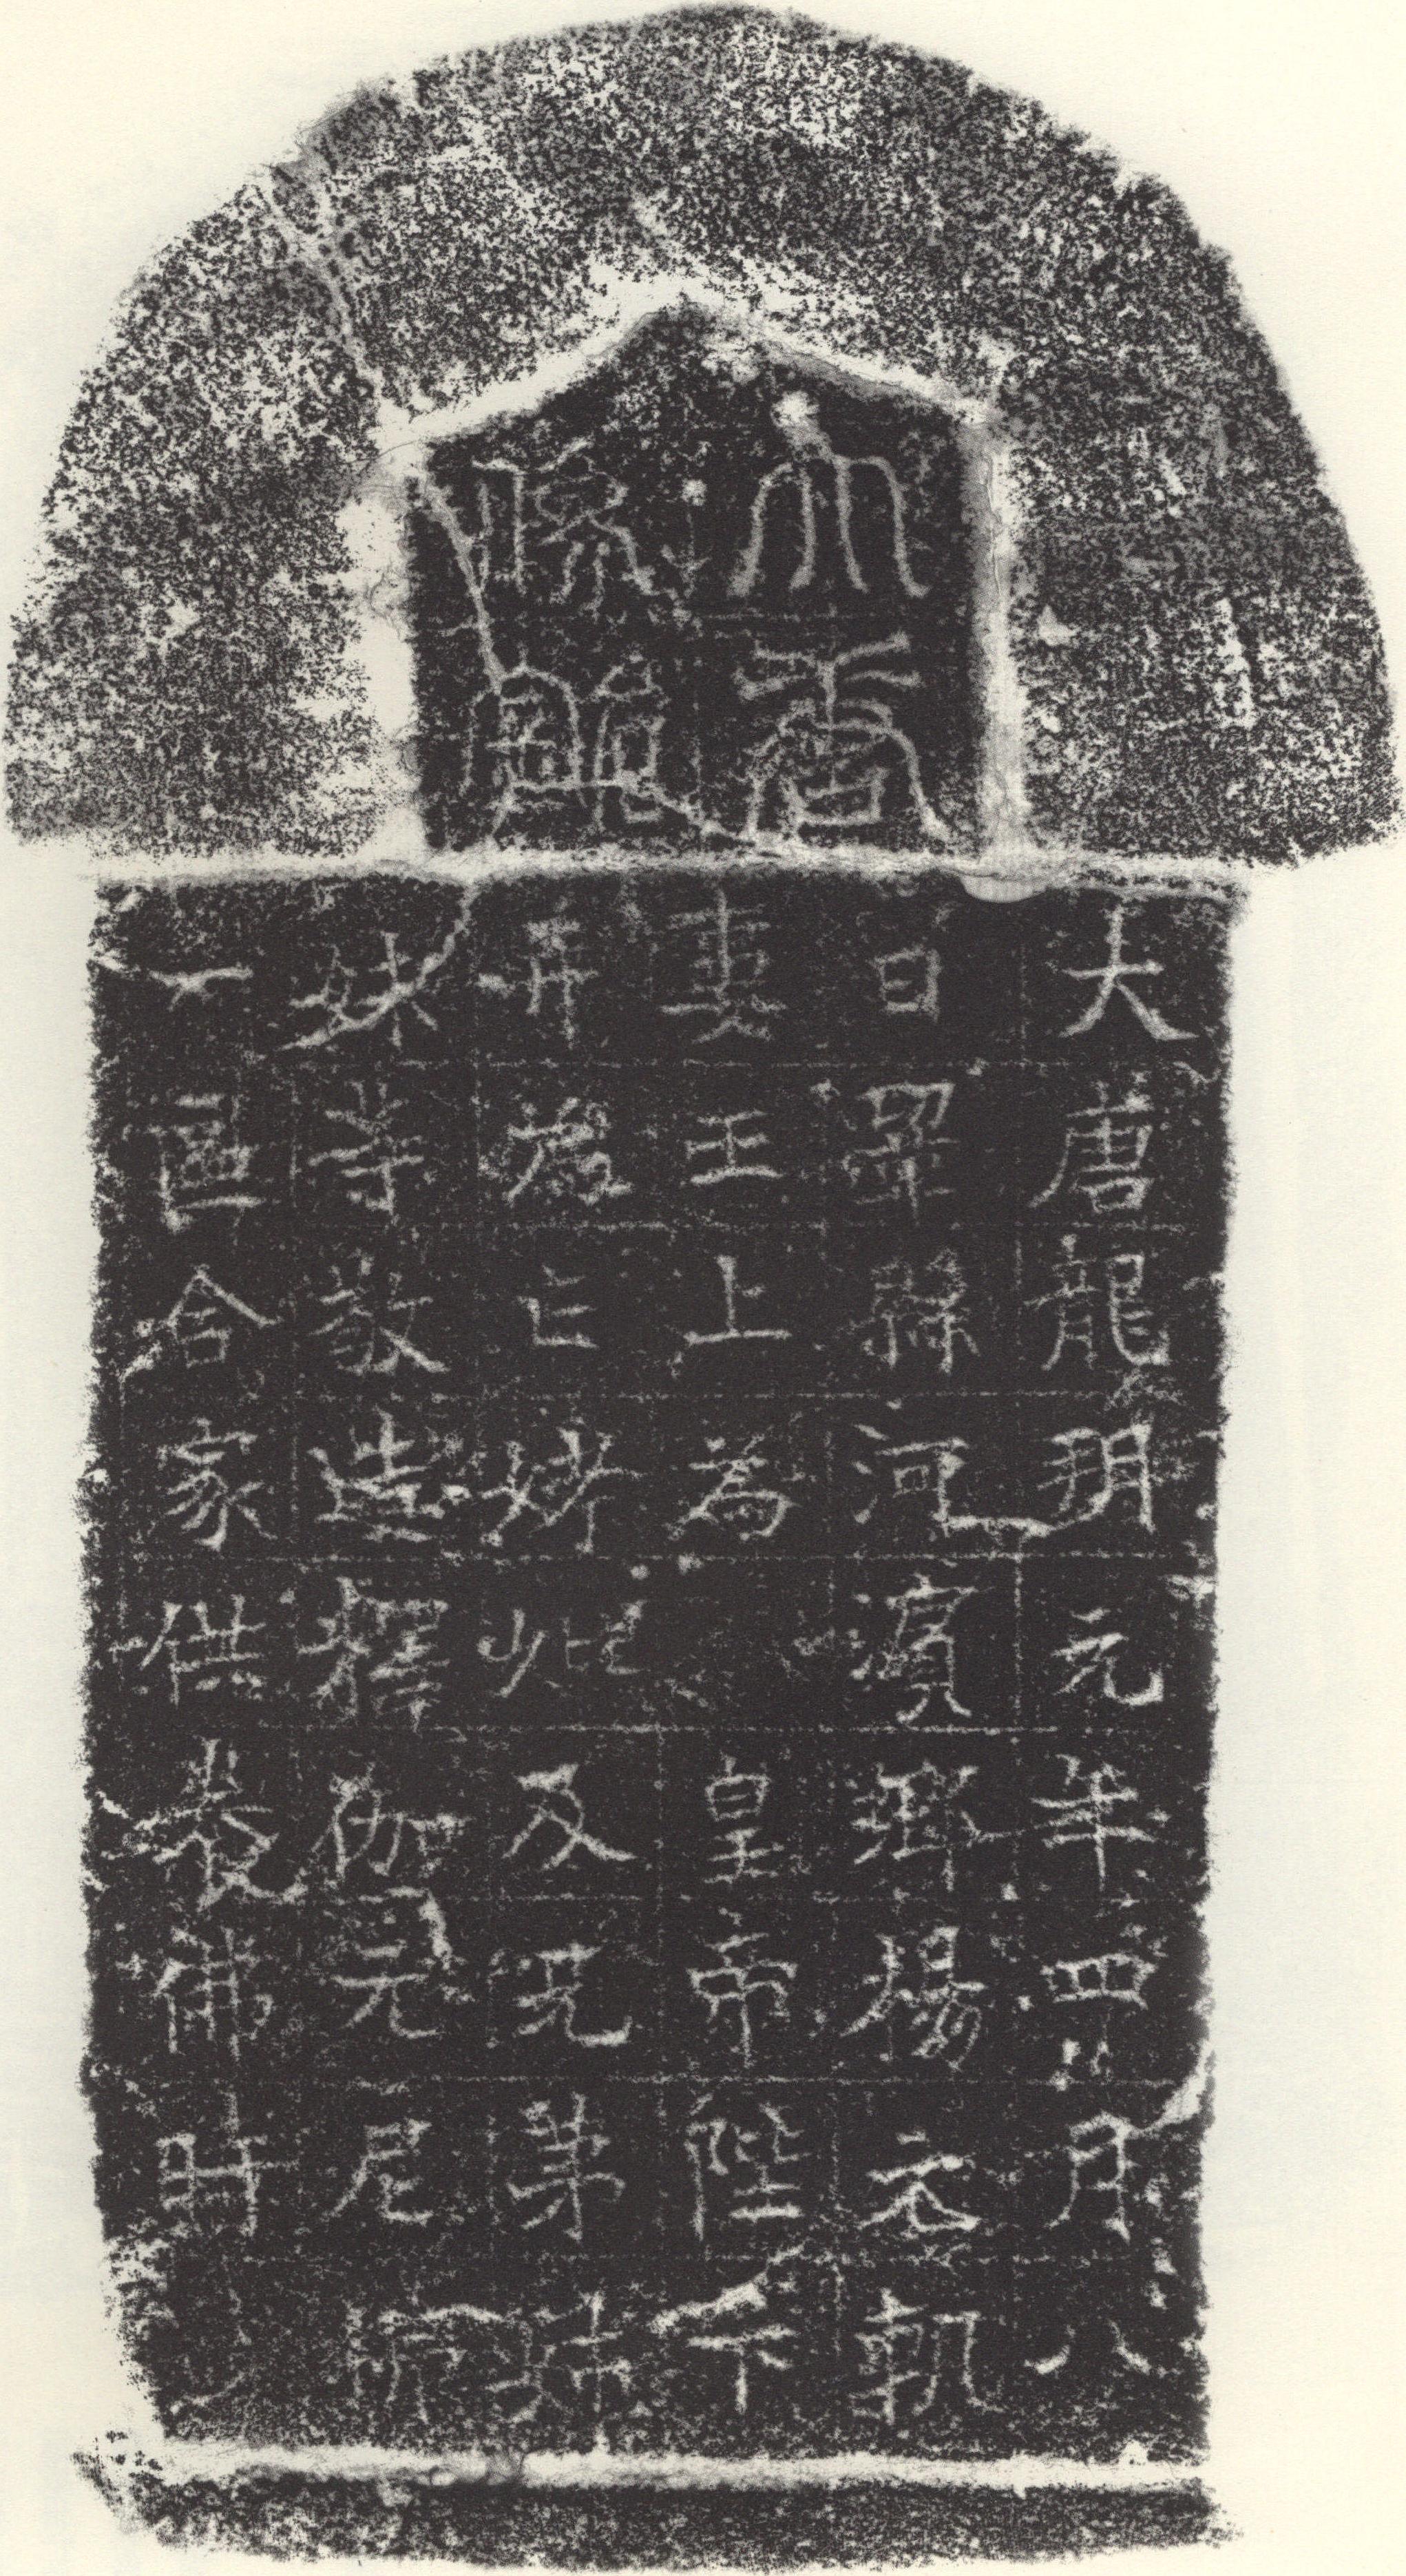 大唐
龕
大唐龍朔元年四月八
日鞏縣河濱鄉楊軌
妻王上為皇帝陛下
并為亡考妣及兄弟姉
妹等敬造釋伽元尼像
一區合家供養佛時